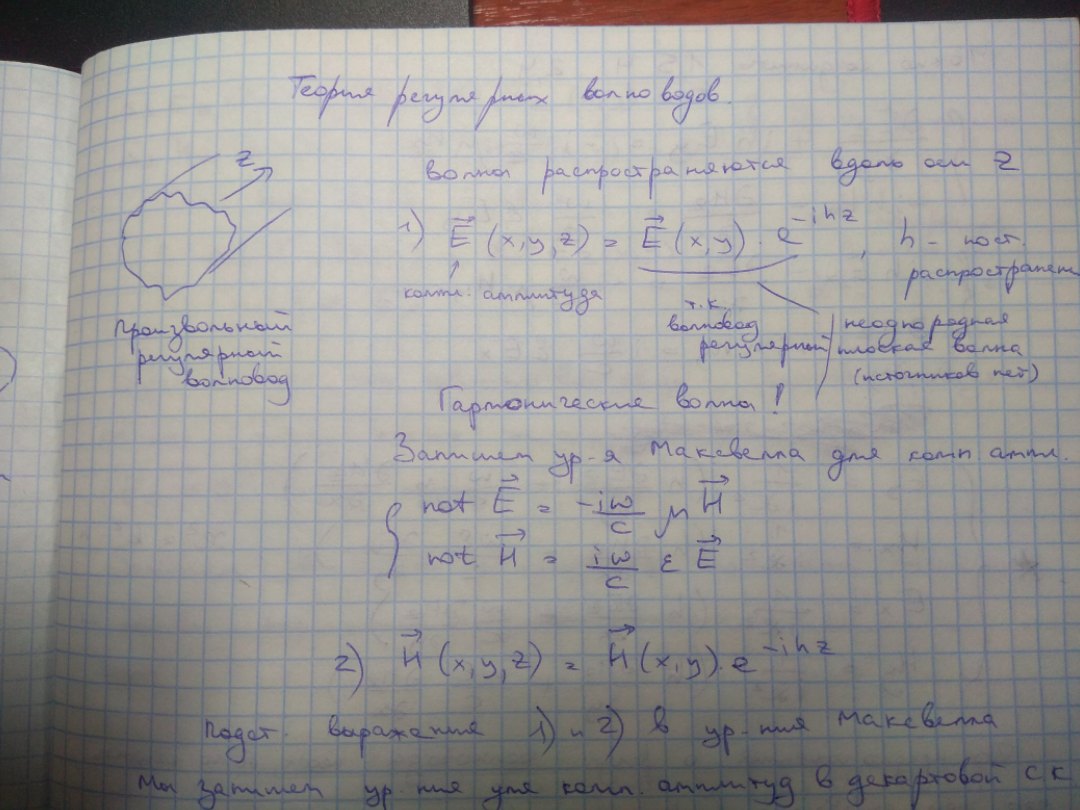 Теория регулярных волноводов.
z
Волны распространяются вдоль оси z
1) E⃗ (x,y,z) = E⃗ (x,y) · e^{-ihz}, h - пост.
распространен
компл. амплитуда
т.к.
волновод
регулярный
неоднородная
плоская волна
(источников нет)
Произвольный
регулярный
волновод
Гармонические волны!
Запишем ур-я Максвелла для комп ампл.
rot E⃗ = -iω/c μ H⃗
rot H⃗ = iω/c ε E⃗
2) H⃗ (x,y,z) = H⃗ (x,y) · e^{-ihz}
Подст. выражения 1) и 2) в ур-ния Максвелла
Мы запишем ур-ния для комп. амплитуд в декартовой с.к